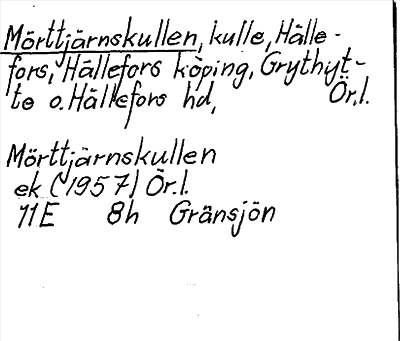 Mörttjärnskullen, kulle, Hälle-
fors, Hällefors köping, Grythyt-
te o. Hällefors hd, Ör.l.
Mörttjärnskullen
ek (1957) Ör.l.
11E 8h Gränsjön